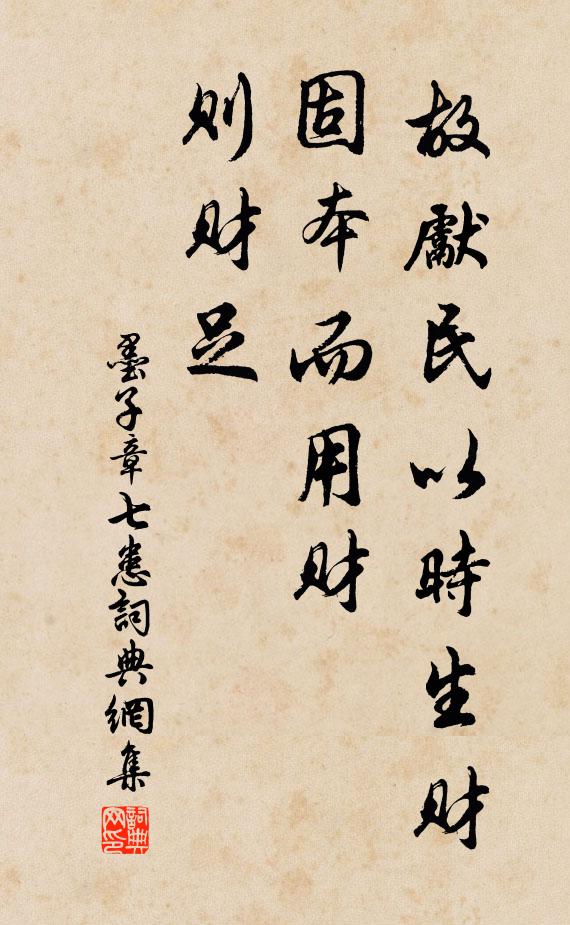 故獻民以時生財
固本而用財
則財足
墨子章七患詞典網集
詞典网印